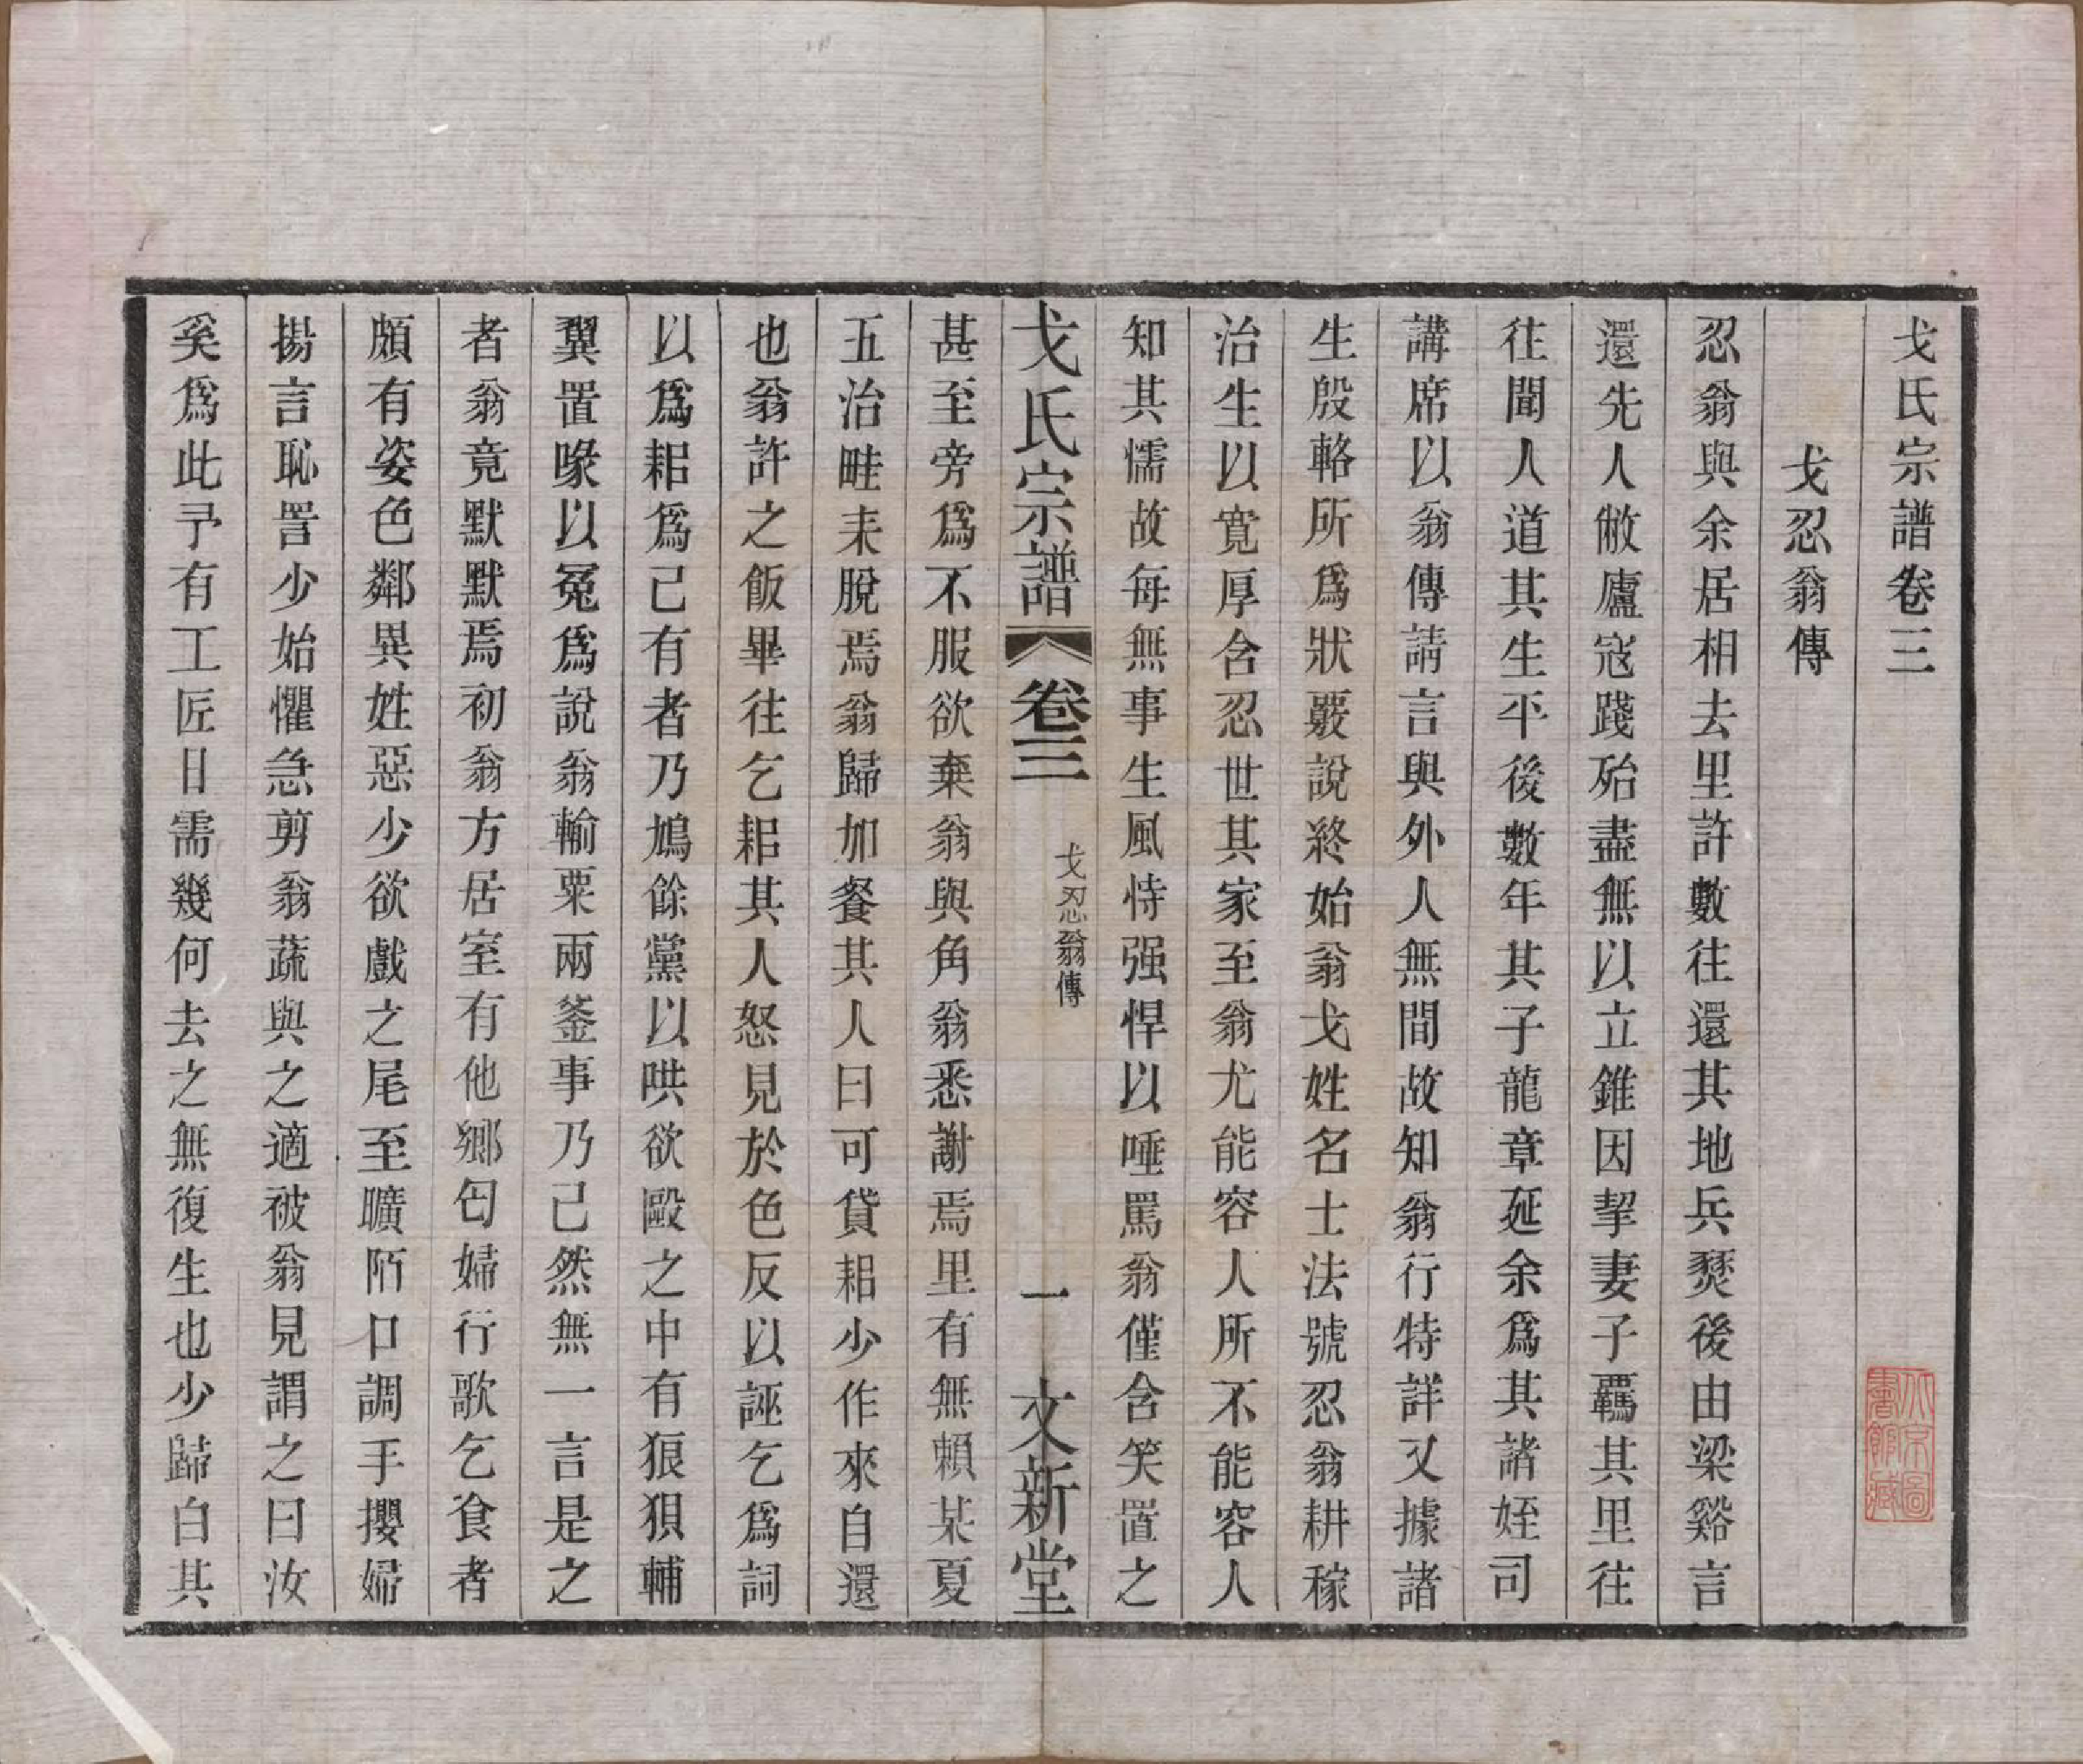 戈氏宗譜卷三
戈忍翁傳
忍翁與余居相去里許數往還其地兵燹後由梁谿言
還先人敝廬寇踐殆盡無以立錐因挈妻子羈其里往
往聞人道其生平後數年其子龍章延余爲其諸姪司
講席以翁傳請言與外人無間故知翁行特詳又據諸
生殷輅所爲狀覈說終始翁戈姓名士法號忍翁耕稼
治生以寬厚含忍世其家至翁尤能容人所不能容人
知其懦故每無事生風恃强悍以唾罵翁僅含笑置之
戈氏宗譜 卷三 戈忍翁傳 一 文新堂
甚至旁爲不服欲棄翁與角翁悉謝焉里有無賴某夏
五治畦耒脫焉翁歸加餐其人曰可貸耜少作來自還
也翁許之飯畢往乞耜其人怒見於色反以誣乞爲詞
以爲耜爲己有者乃鳩餘黨以哄欲毆之中有狼狽輔
翼置喙以冤爲說翁輸粟兩釜事乃己然無一言是之
者翁竟默默焉初翁方居室有他鄉匄婦行歌乞食者
頗有姿色鄰異姓惡少欲戲之尾至曠陌口調手攖婦
揚言恥詈少始懼急剪翁蔬與之適被翁見謂之曰汝
奚爲此予有工匠日需幾何去之無復生也少歸白其